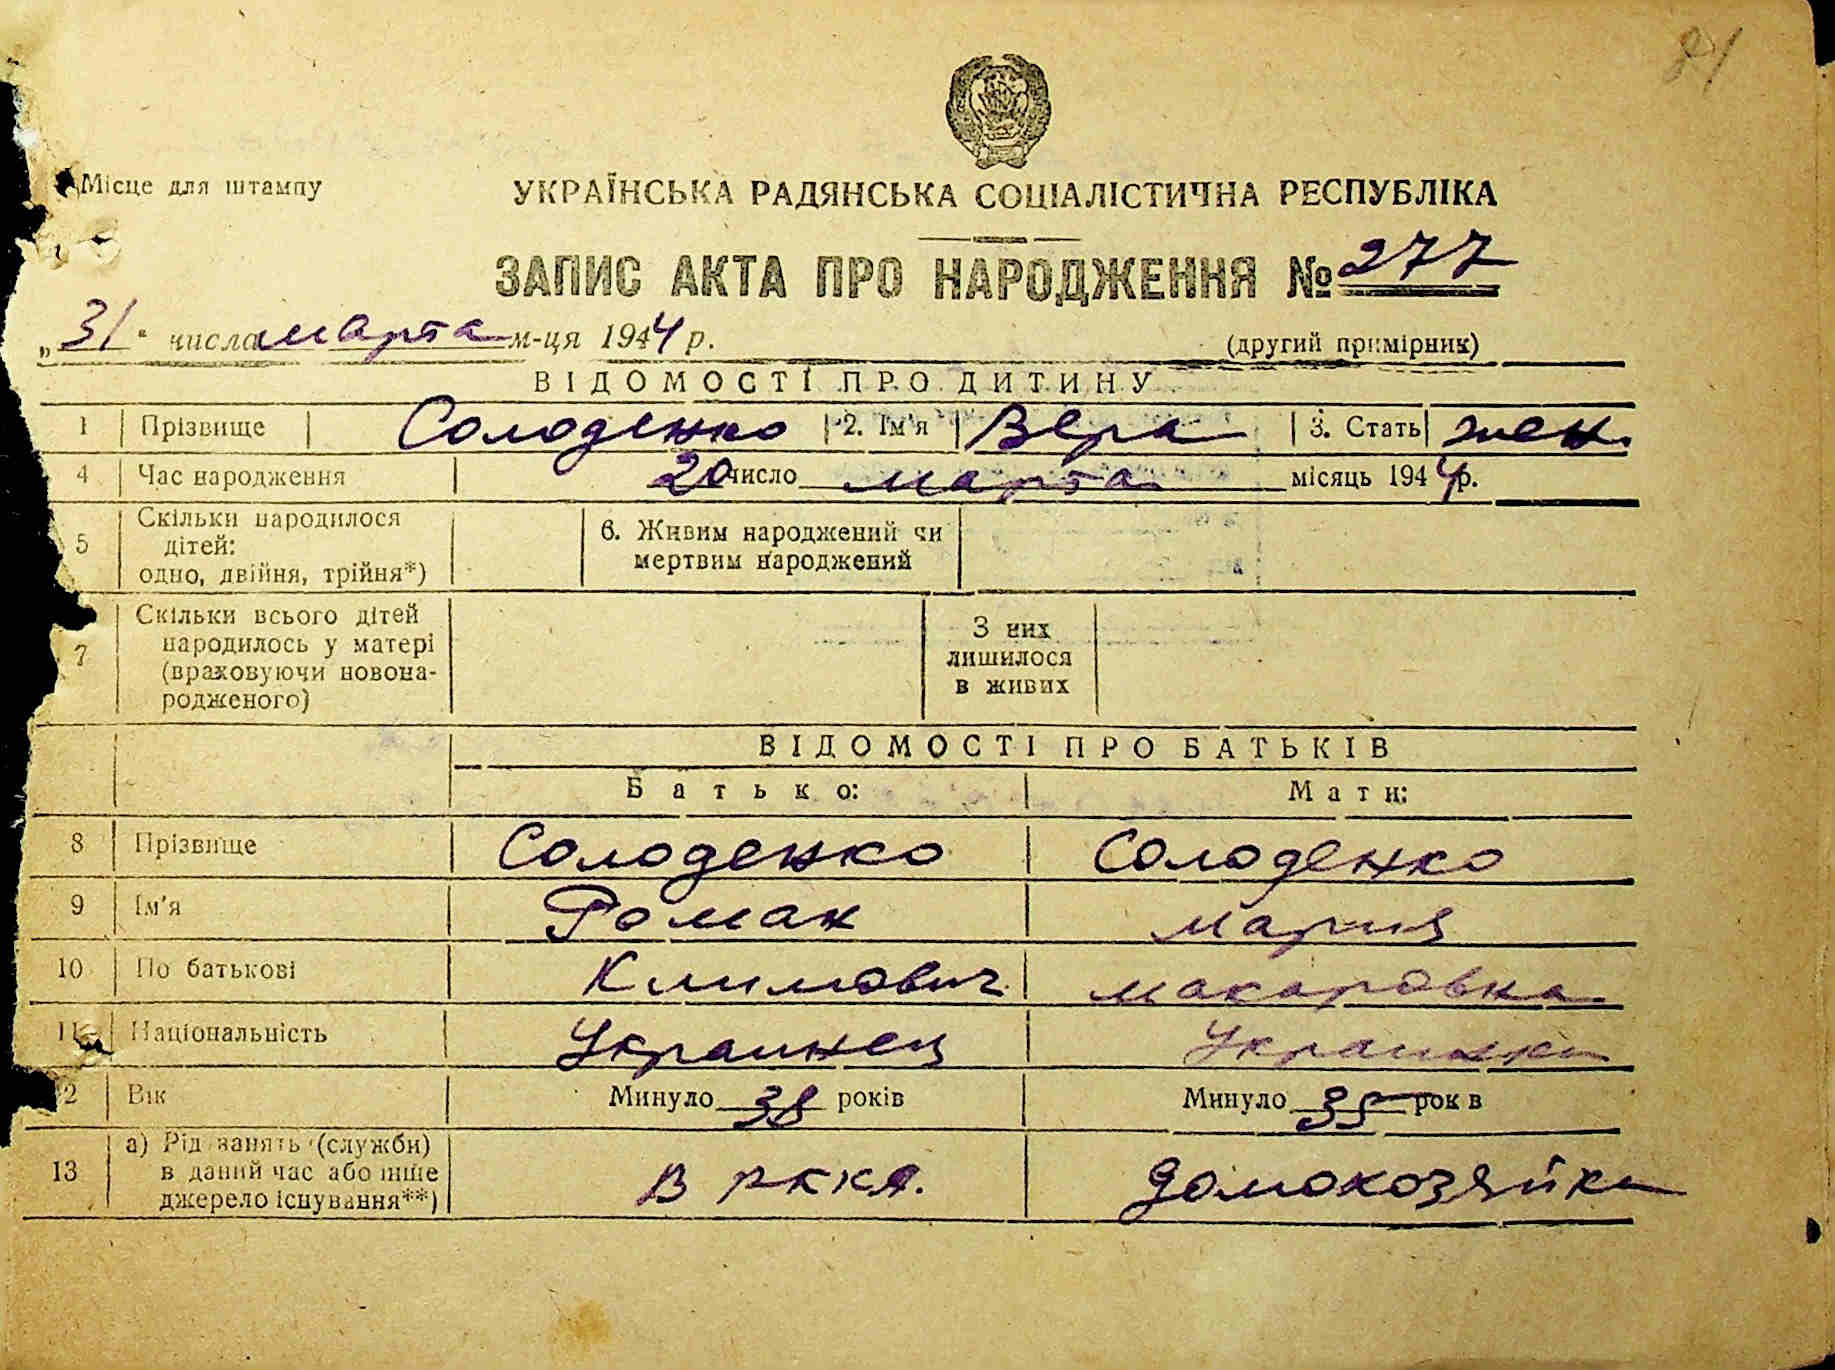 84
Місце для штампу
УКРАЇНСЬКА РАДЯНСЬКА СОЦІАЛІСТИЧНА РЕСПУБЛІКА
ЗАПИС АКТА ПРО НАРОДЖЕННЯ № 277
„31" числа марта м-ця 1944 р.
(другий примірник)
ВІДОМОСТІ ПРО ДИТИНУ
1 Прізвище Солоденко 2. Ім'я Вера 3. Стать жен.
4 Час народження 20 число марта місяць 1944 р.
5 Скільки народилося
дітей:
одно, двійня, трійня*)
6. Живим народжений чи
мертвим народжений
7 Скільки всього дітей
народилось у матері
(враховуючи новона-
родженого)
З них
лишилося
в живих
ВІДОМОСТІ ПРО БАТЬКІВ
Батько: Мати:
8 Прізвище Солоденко Солоденко
9 Ім'я Роман Мария
10 По батькові Климович Макаровна
11 Національність Украинец Украинка
12 Вік Минуло 38 років Минуло 35 рок в
13 а) Рід занять (служби)
в даний час або інше
джерело існування**)
В РККА. Домохозяйка